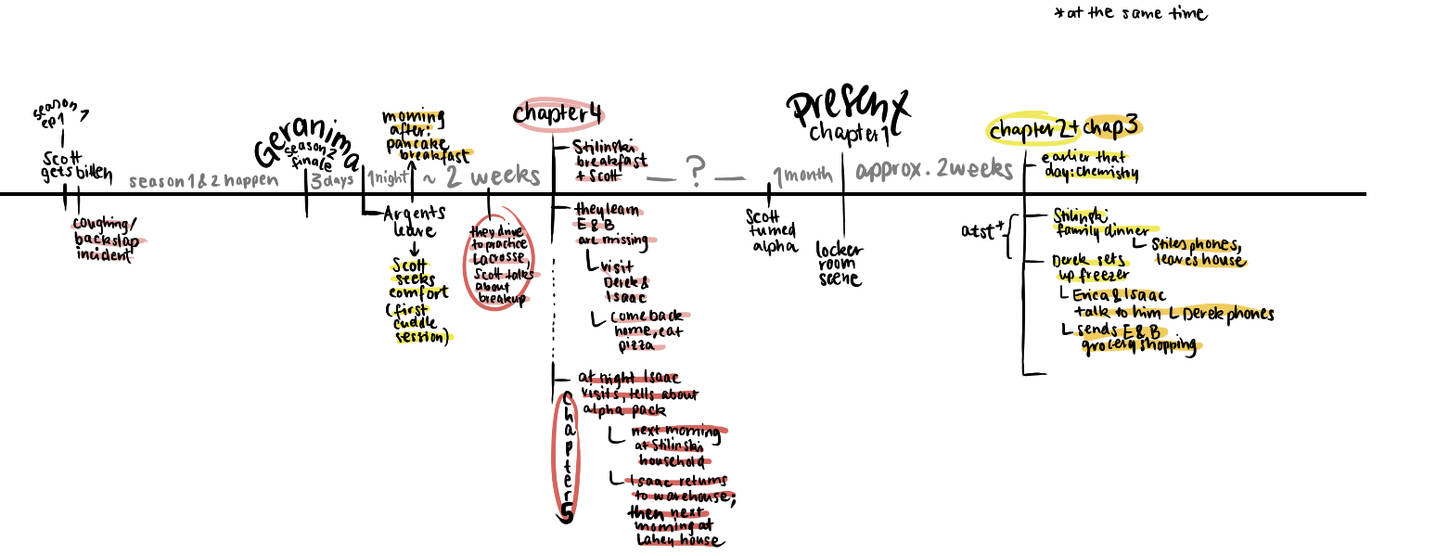 *at the same time
season
ep 1
Scott
gets bitten
coughing/
backslap
incident
season 1 & 2 happen
Geranima
season 2
finale
3 days
1 night
morning
after:
pancake
breakfast
Argents
leave
Scott
seeks
comfort
(first
cuddle
session)
~ 2 weeks
they drive
to practice
Lacrosse,
Scott talks
about
breakup
chapter 4
Stilinski
breakfast
+ Scott
they learn
E & B
are missing
visit
Derek &
Isaac
come back
home, eat
pizza
at night Isaac
visits, tells about
alpha pack
chapter 5
next morning
at Stilinski
household
Isaac returns
to warehouse;
then next
morning at
Lahey house
— ? —
Scott
turned
alpha
1 month
Present
chapter 1
locker
room
scene
approx. 2 weeks
chapter 2 + chap 3
earlier that
day: chemistry
atst*
Stilinski
family dinner
Stiles phones,
leaves house
Derek sets
up freezer
Erica & Isaac
talk to him
Derek phones
sends E & B
grocery shopping